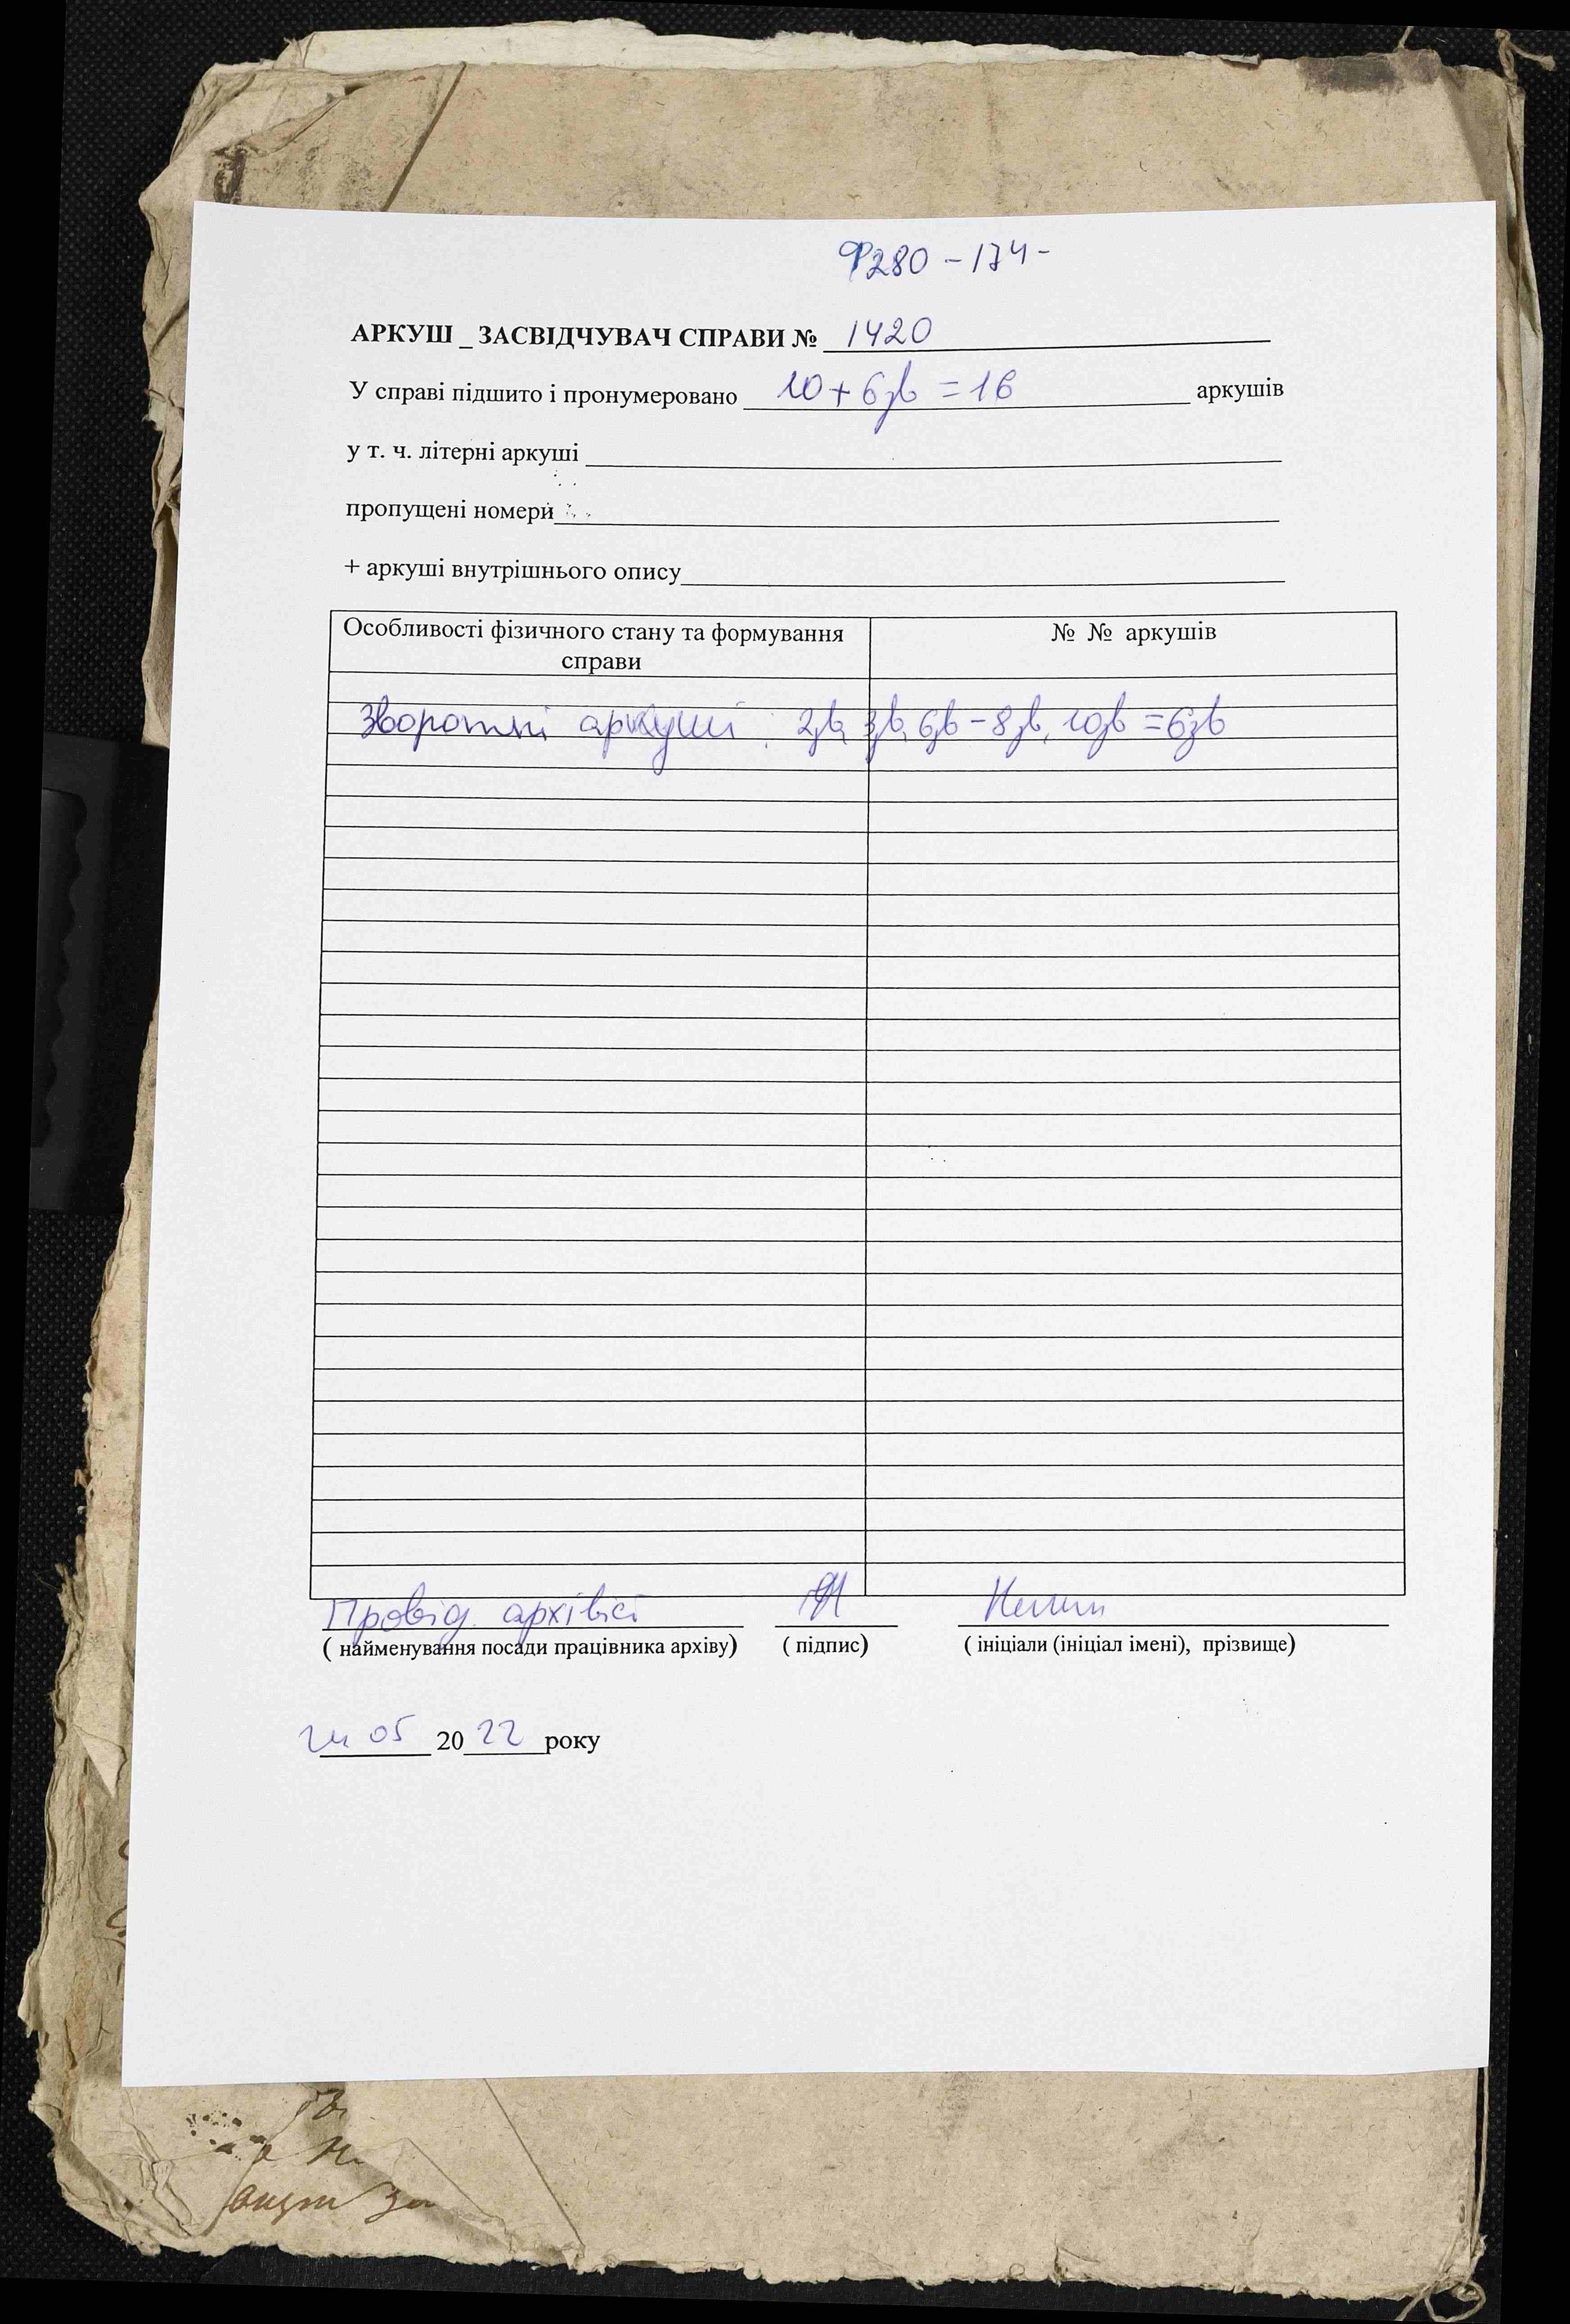 Ф280 - 174 -
АРКУШ _ ЗАСВІДЧУВАЧ СПРАВИ № 1420
У справі підшито і пронумеровано 10 + 6зв = 16 аркушів
у т. ч. літерні аркуші
пропущені номери
+ аркуші внутрішнього опису
Особливості фізичного стану та формування справи
№ № аркушів
Зворотні аркуші : 2зв, 3зв, 6зв - 8зв, 10зв = 6зв
Провід. архівіст
( найменування посади працівника архіву) ( підпис) ( ініціали (ініціал імені), прізвище)
24 05 2022 року